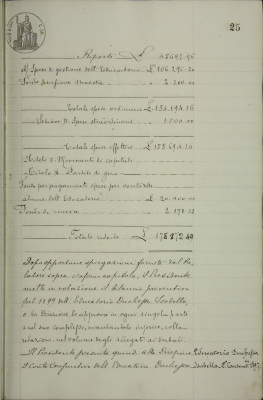 25
Riporto £ 45697.96
Spese di gestione dell'Educatorio £ 106296.20
Fondo pensione maestre " 2.200.00
Totale spese ordinarie £ 154.194.16
Sezione II Spese straordinarie 1500.00
Totale spese effettive £ 155694.16
Titolo II Movimento di capitali
Titolo III Partite di giro
Fondo per pagamenti spese per conto delle
alunne dell'Educatorio £ 20.400.00
Fondo di riserva " 2.178.24
Totale uscita £ 178272.40
Dopo opportune spiegazioni fornite dal Re
latore sopra ciascun capitolo, il Presidente
mette in votazione il bilancio preventivo
pel 1899 dell'Educatorio Duchessa Isabella,
e la Direzione lo approva in ogni singola parte
e nel suo complesso, mandandolo inserire, colla
relazione, nel volume degli allegati ai verbali.
Il Presidente presenta quindi alla Direzione
il Conto Consuntivo dell'Educatorio Duchessa Isabella
Educatorio Duchessa